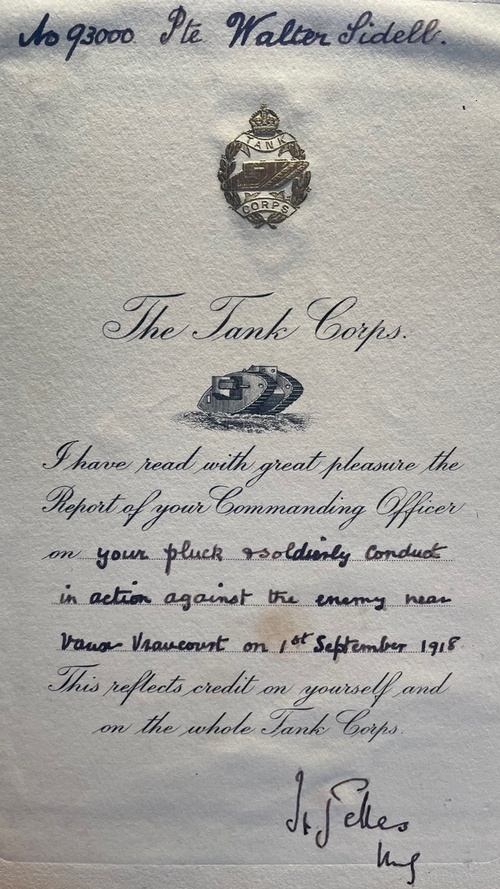 No 93000 Pte Walter Sidell.
TANK
CORPS
The Tank Corps.
I have read with great pleasure the
Report of your Commanding Officer
on your pluck & soldierly conduct
in action against the enemy near
Vaux Vraucourt on 1st September 1918
This reflects credit on yourself and
on the whole Tank Corps.